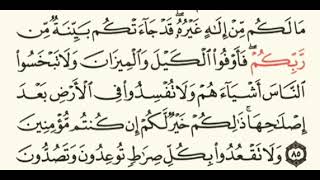 مَا لَكُم مِّنْ إِلَٰهٍ غَيْرُهُۥ ۖ قَدْ جَآءَتْكُم بَيِّنَةٌ مِّن
رَّبِّكُمْ ۖ فَأَوْفُوا۟ ٱلْكَيْلَ وَٱلْمِيزَانَ وَلَا تَبْخَسُوا۟
ٱلنَّاسَ أَشْيَآءَهُمْ وَلَا تُفْسِدُوا۟ فِى ٱلْأَرْضِ بَعْدَ
إِصْلَٰحِهَا ۚ ذَٰلِكُمْ خَيْرٌ لَّكُمْ إِن كُنتُم مُّؤْمِنِينَ
٨٥ وَلَا تَقْعُدُوا۟ بِكُلِّ صِرَٰطٍ تُوعِدُونَ وَتَصُدُّونَ